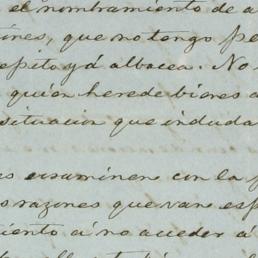 el nombramiento de a
ines, que no tengo pe
epito yá albacea. No
quien herede bienes
situacion que induda
es ecsaminen con la
s razones que van esp
iento á no acceder á